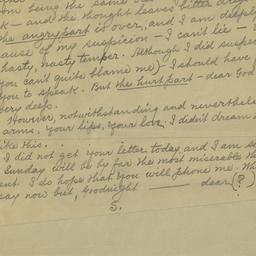 om being the same
k — and the thought leaves bitter
the angry part is over, and I am deeply
ause of my suspicion — I can't lie —
hasty, nasty temper. Although I did suspec
you can't quite blame me) I should have
you to speak. But the hurt part — dear God
very deep.
However, notwithstanding and nevertheles
arms, your lips, your love. I didn't dream
like this.
I did not get your letter today, and I am so
Sunday will be by far the most miserable th
ent. I do hope that you will phone me. Wh
say now but, Goodnight — dear (?)
S.